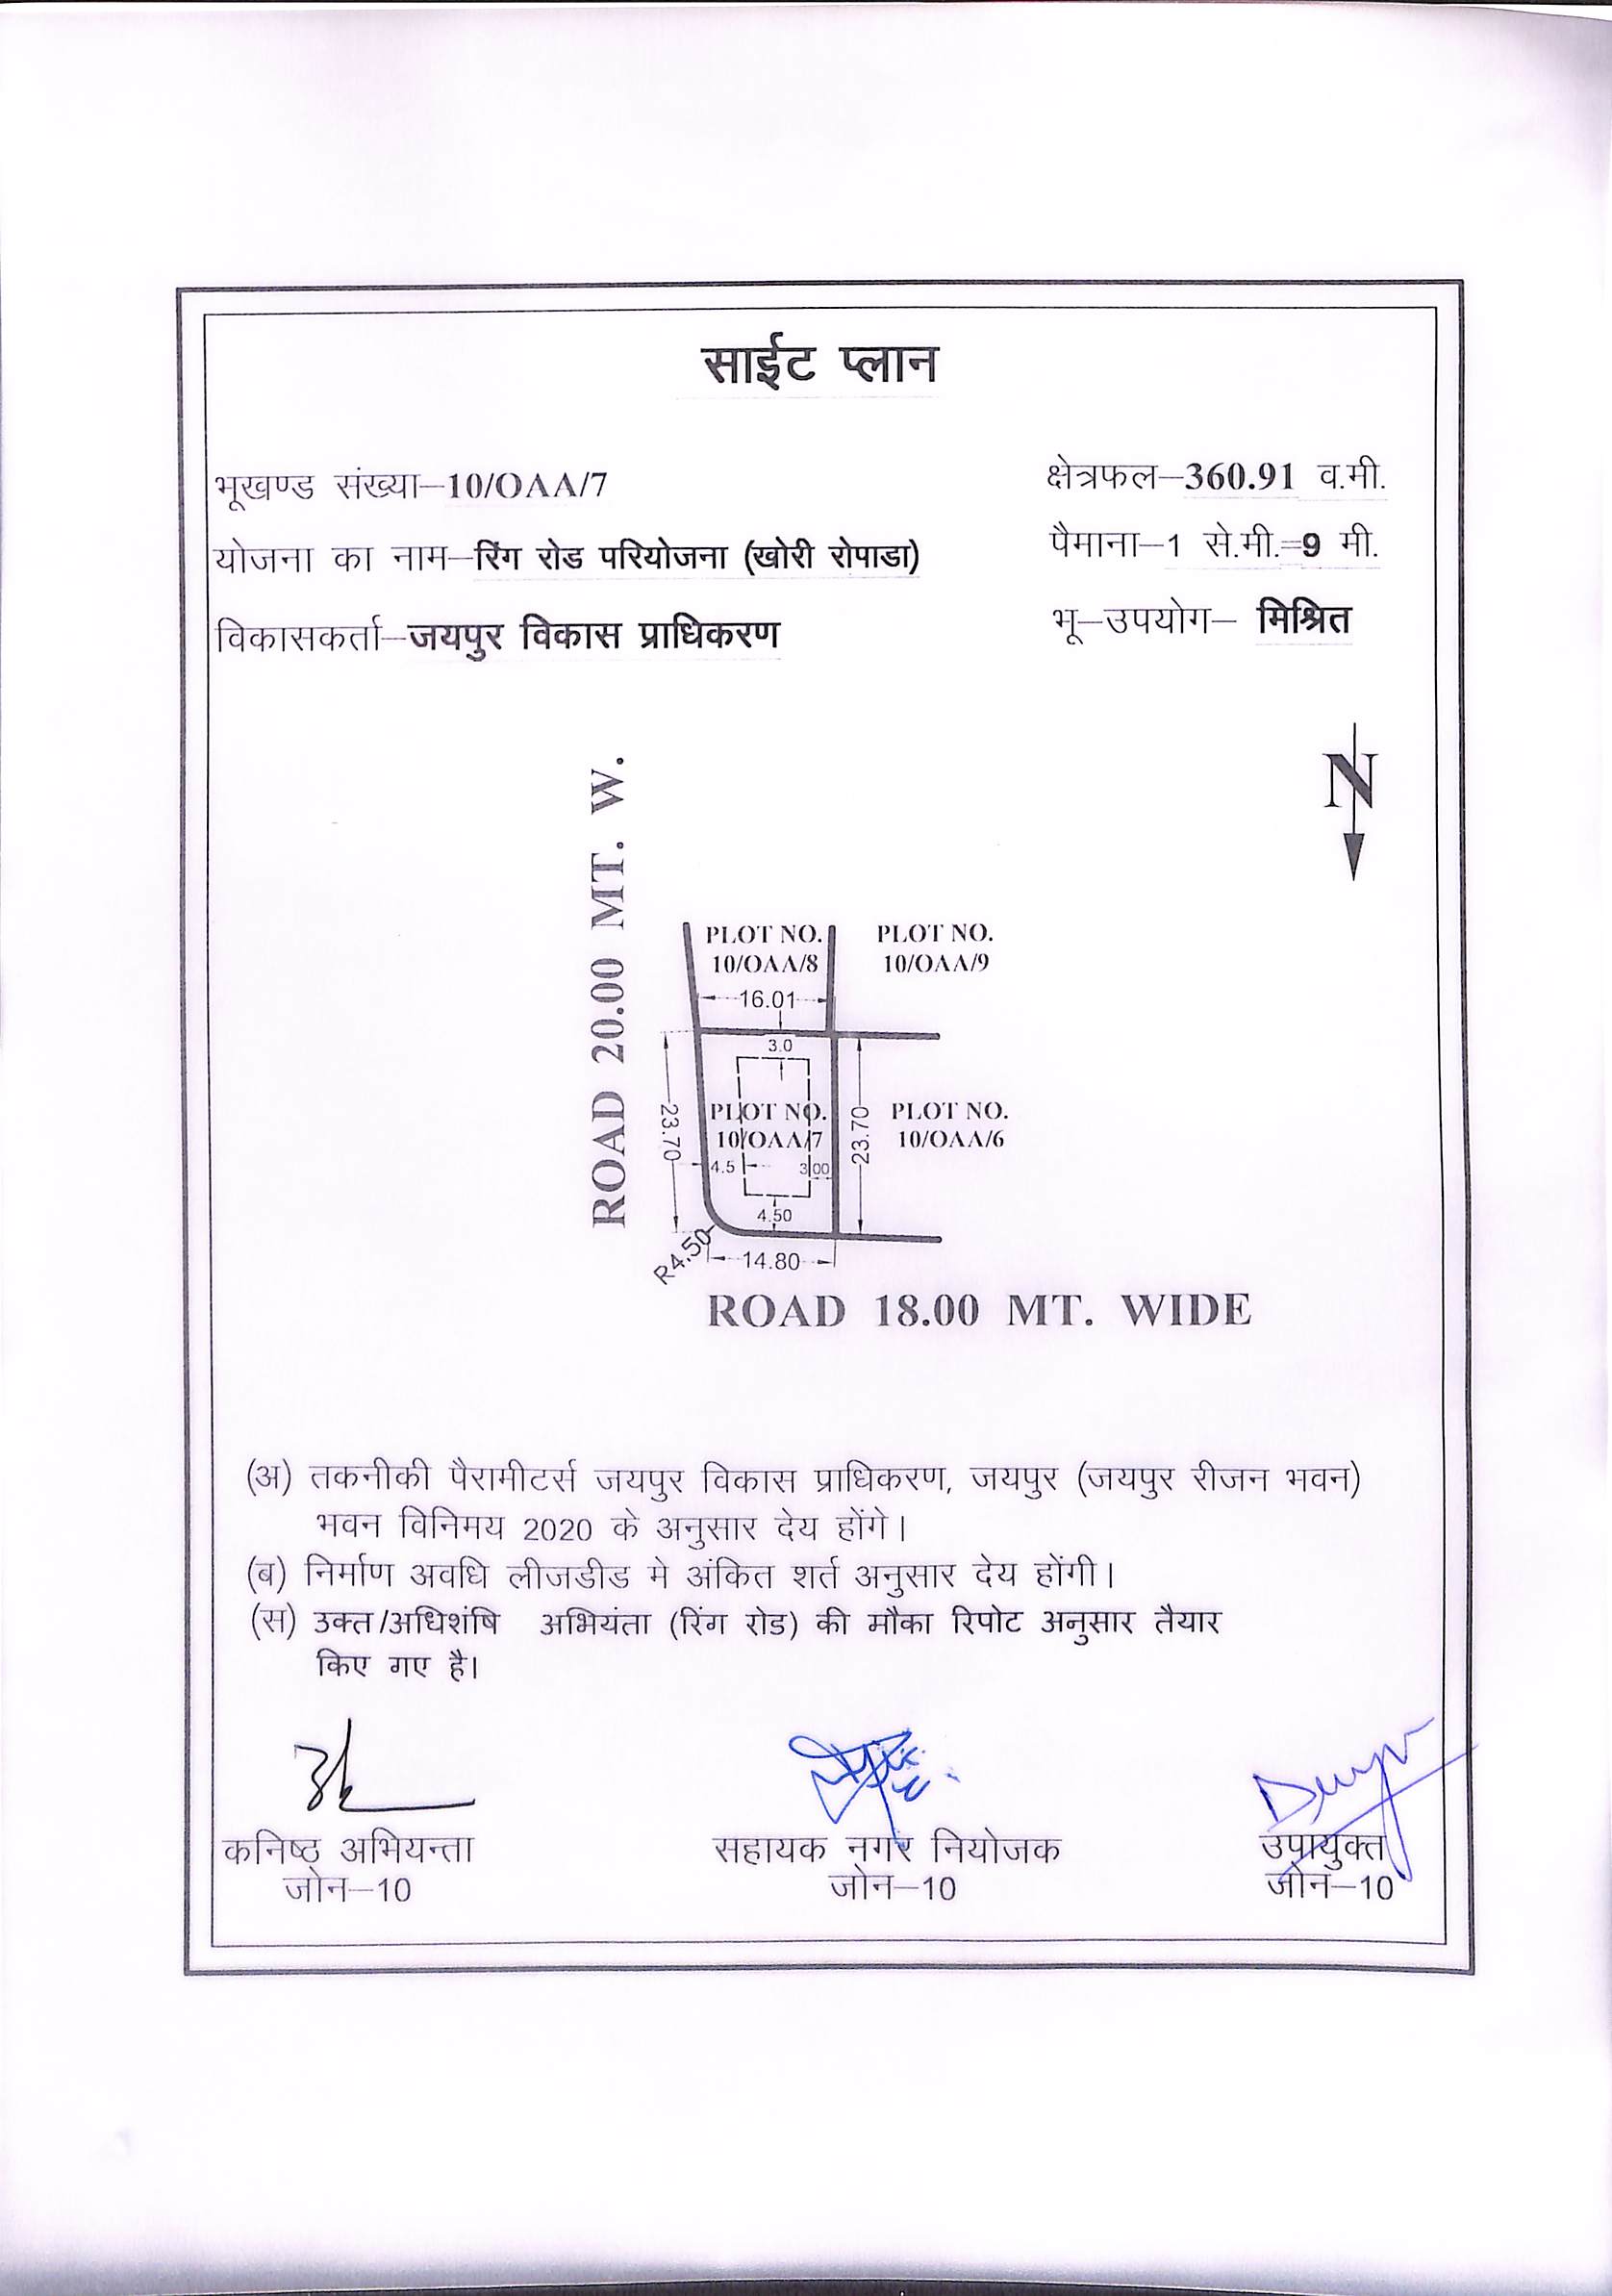 साईट प्लान
भूखण्ड संख्या–10/OAA/7
क्षेत्रफल–360.91 व.मी.
योजना का नाम–रिंग रोड परियोजना (खोरी रोपाडा)
पैमाना–1 से.मी.=9 मी.
विकासकर्ता–जयपुर विकास प्राधिकरण
भू–उपयोग– मिश्रित
N
ROAD 20.00 MT. W.
PLOT NO.
10/OAA/8
PLOT NO.
10/OAA/9
16.01
3.0
23.70
PLOT NO.
10/OAA/7
23.70
PLOT NO.
10/OAA/6
4.5
3.00
4.50
R4.50
14.80
ROAD 18.00 MT. WIDE
(अ) तकनीकी पैरामीटर्स जयपुर विकास प्राधिकरण, जयपुर (जयपुर रीजन भवन)
भवन विनिमय 2020 के अनुसार देय होंगे।
(ब) निर्माण अवधि लीजडीड मे अंकित शर्त अनुसार देय होंगी।
(स) उक्त/अधिशंषि अभियंता (रिंग रोड) की मौका रिपोट अनुसार तैयार
किए गए है।
कनिष्ठ अभियन्ता
जोन–10
सहायक नगर नियोजक
जोन–10
उपायुक्त
जोन–10